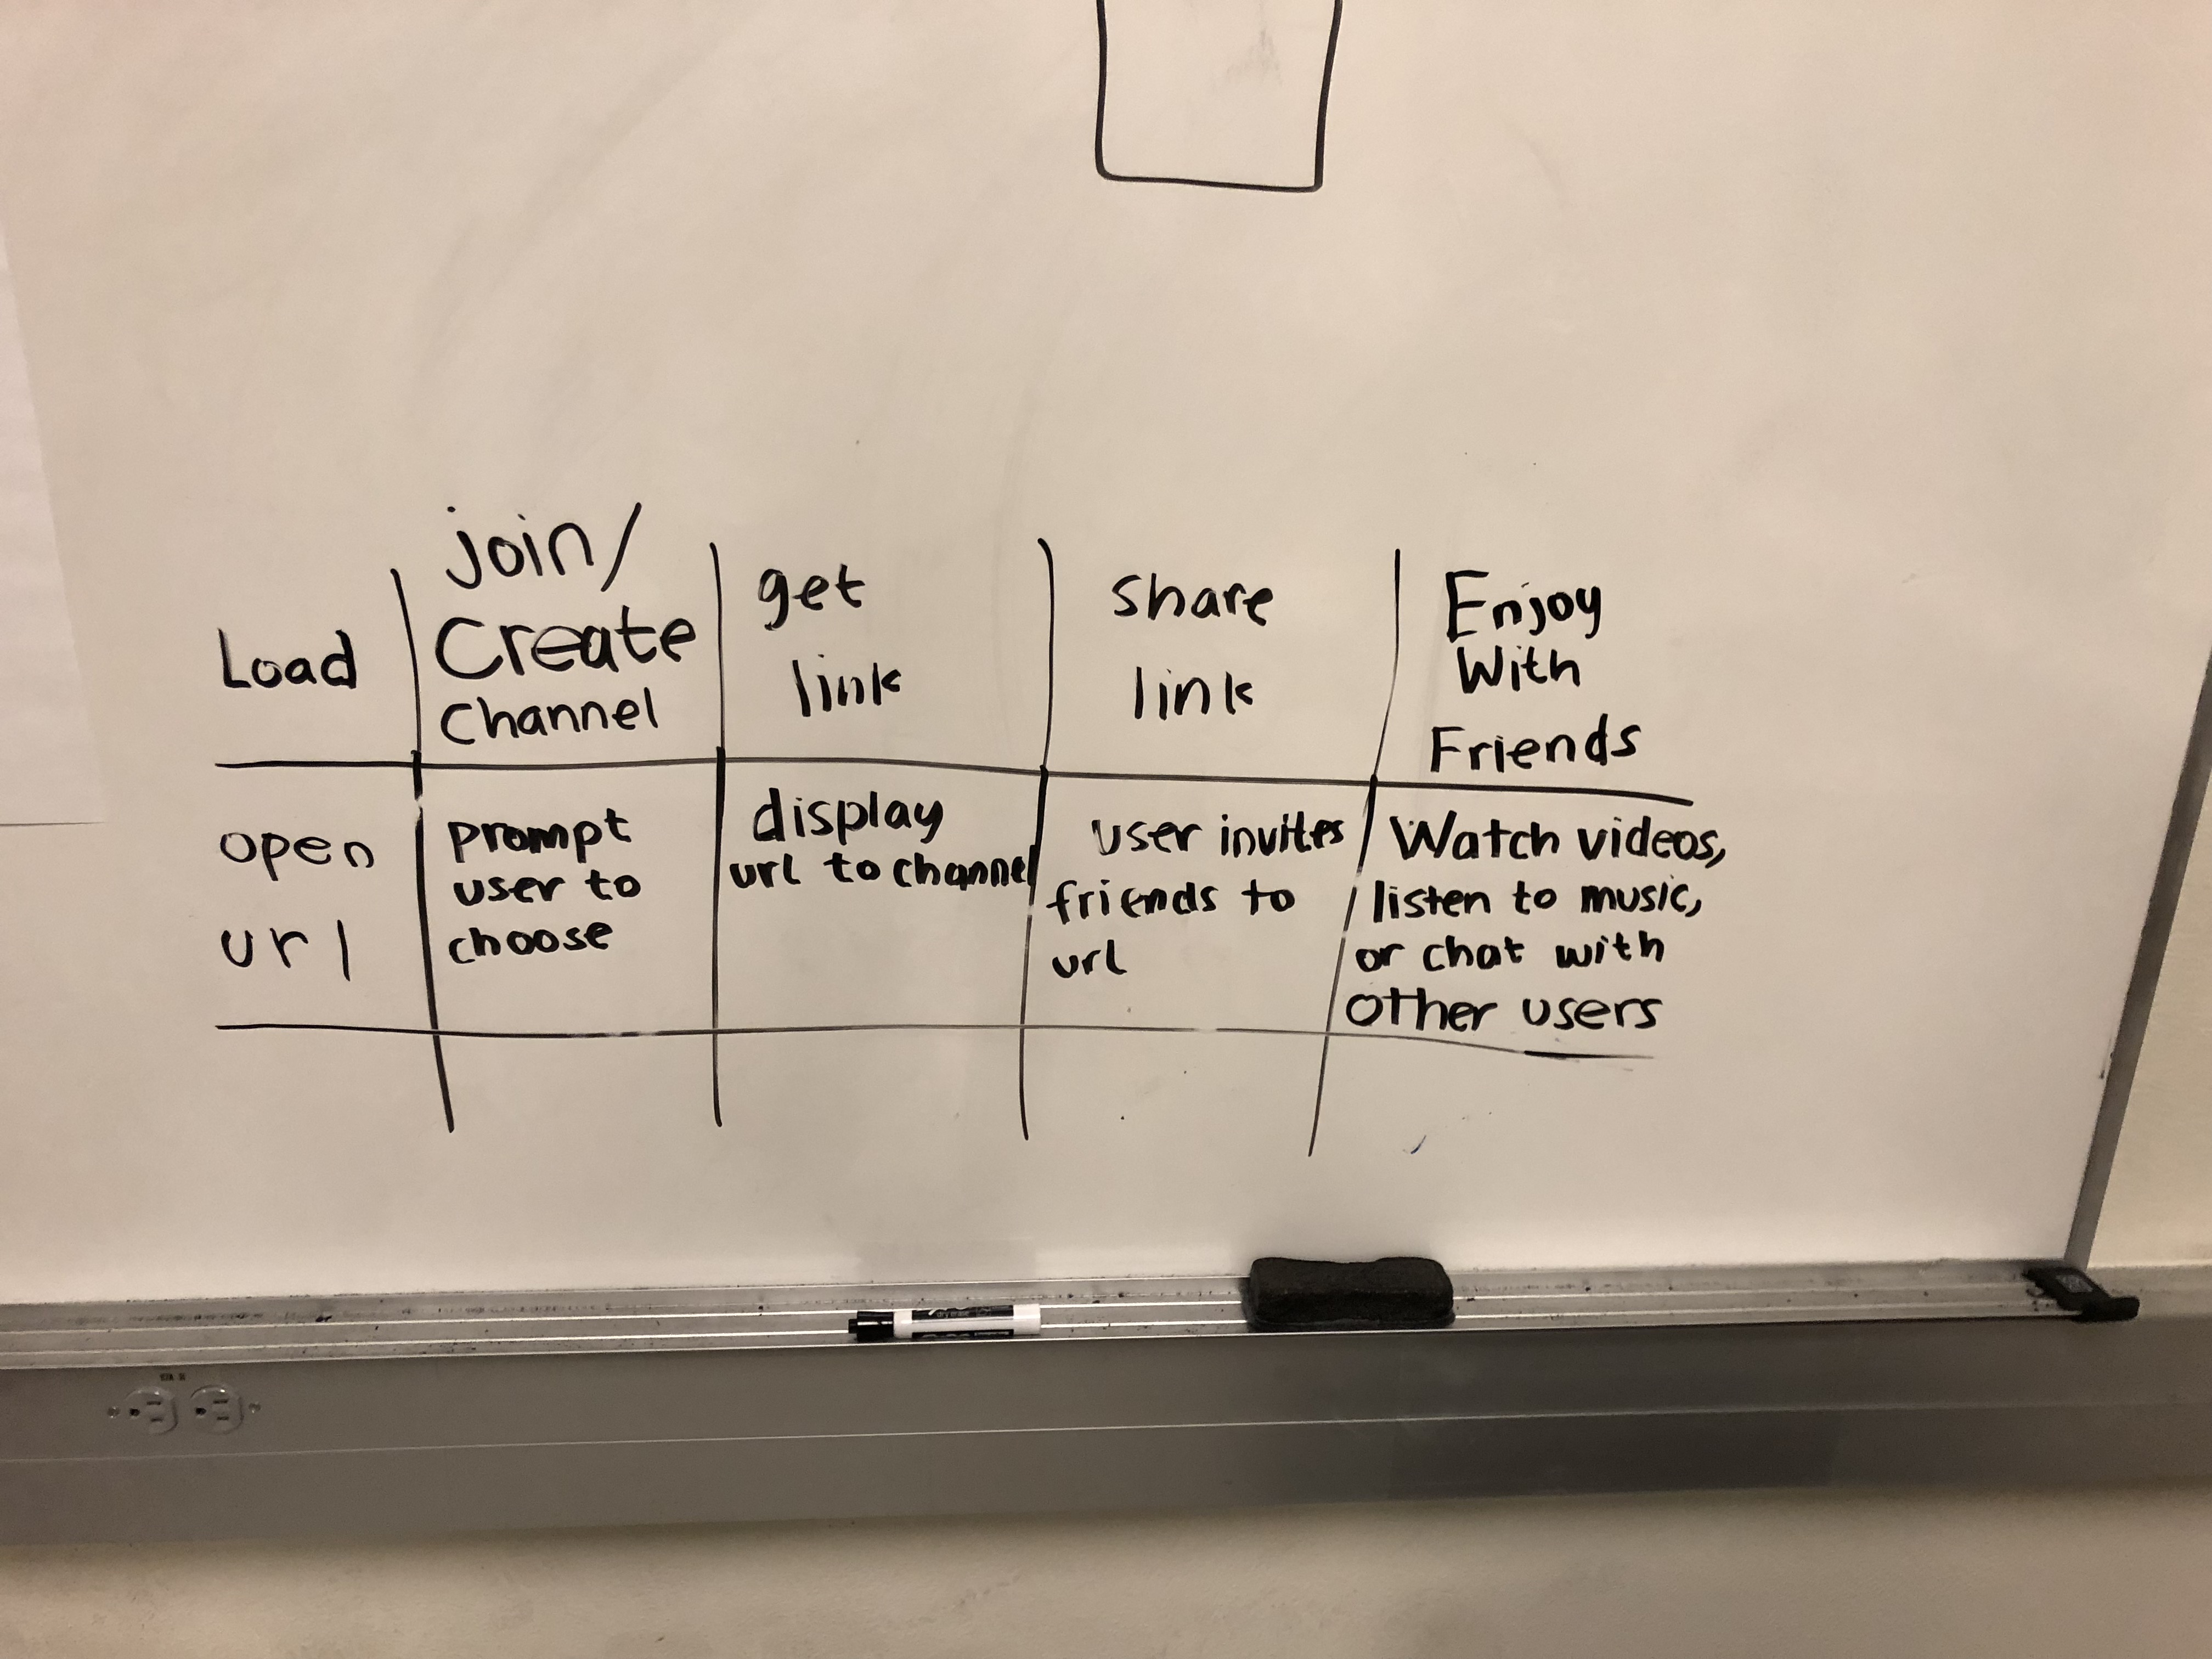 Load
join/
Create
Channel
get
link
share
link
Enjoy
With
Friends
open
url
prompt
user to
choose
display
url to channel
user invites
friends to
url
Watch videos,
listen to music,
or chat with
other users